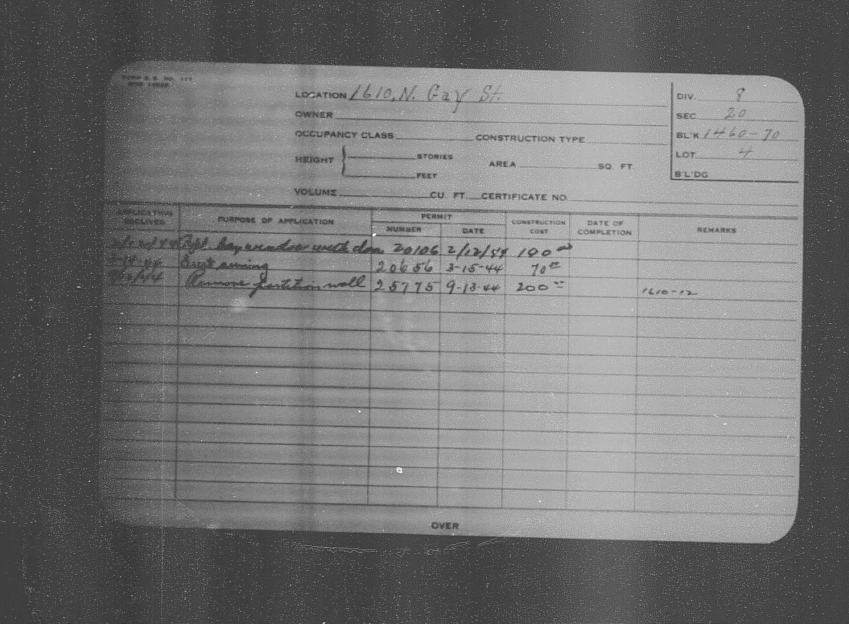 FORM B.B. NO.
LOCATION 1610 N. Gay St.
OWNER
OCCUPANCY CLASS CONSTRUCTION TYPE
HEIGHT STORIES
FEET
AREA SQ. FT.
VOLUME CU. FT. CERTIFICATE NO.
DIV. 8
SEC 20
BL'K 1460-70
LOT 4
B'L'DG
APPLICATION RECEIVED PURPOSE OF APPLICATION PERMIT NUMBER DATE CONSTRUCTION COST DATE OF COMPLETION REMARKS
2/12/44 Repl. bay window with door 20106 2/12/44 100 00
3-14-44 Erect awning 20656 3-15-44 70 00
9/12/44 Remove partition wall 25775 9-13-44 200 00 1610-12
OVER